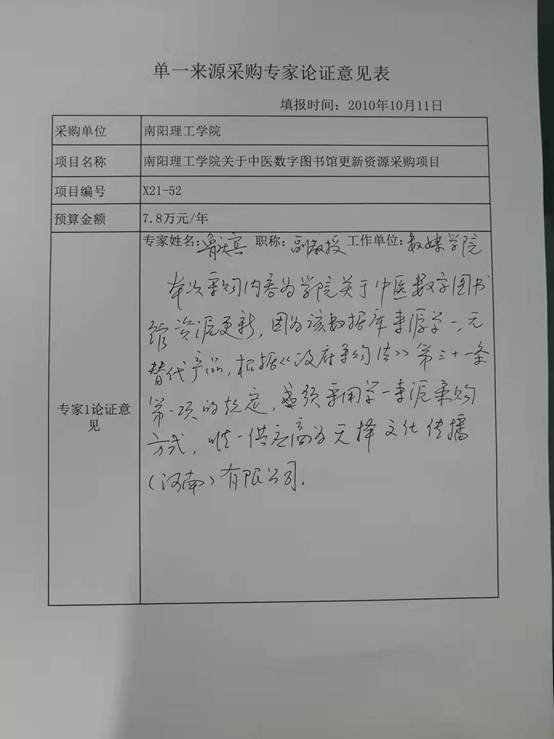 单一来源采购专家论证意见表
填报时间：2010年10月11日
采购单位 南阳理工学院
项目名称 南阳理工学院关于中医数字图书馆更新资源采购项目
项目编号 X21-52
预算金额 7.8万元/年
专家姓名: 职称: 副教授 工作单位: 数媒学院
本次采购内容为学院关于中医数字图书
馆资源更新，因为该数据库来源单一，无
替代产品，根据《政府采购法》第三十一条
第一项的规定，必须采用单一来源采购
方式，唯一供应商为天择文化传播
（河南）有限公司.
专家1论证意
见